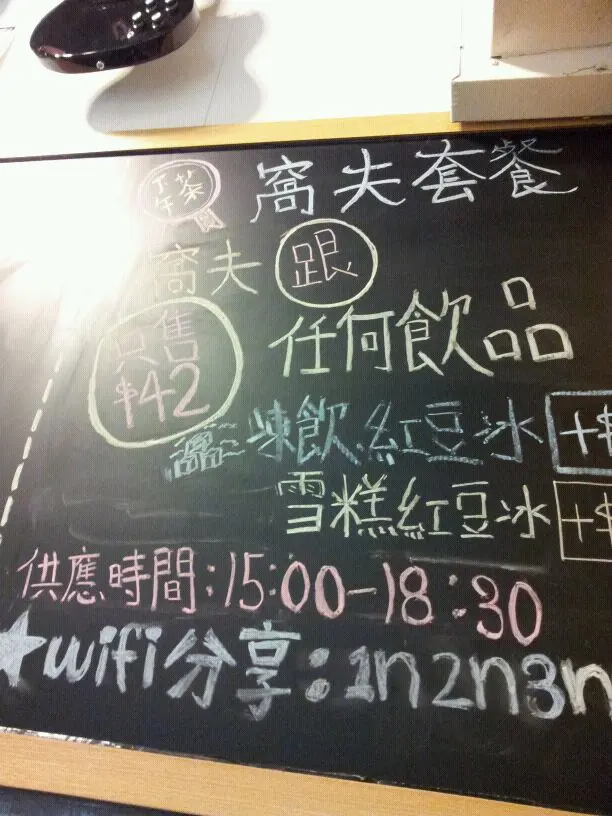 下午茶 窩夫套餐
窩夫 跟
只售 $42 任何飲品
凍飲.紅豆冰 +$
雪糕紅豆冰 +$
供應時間:15:00-18:30
★wifi分享:1n2n3n